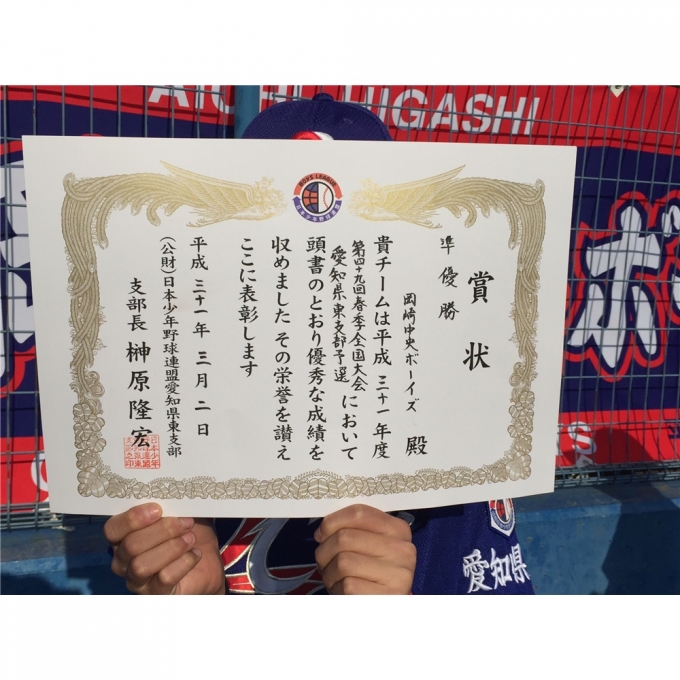 AICHI HIGASHI
BOYS LEAGUE
賞状
準優勝
岡崎中央ボーイズ 殿
貴チームは平成三十一年度
第四十九回春季全国大会
愛知県東支部予選 において
頭書のとおり優秀な成績を
収めました その栄誉を讃え
ここに表彰します
平成三十一年三月二日
(公財)日本少年野球連盟愛知県東支部
支部長 榊原隆宏
ボ
愛知県